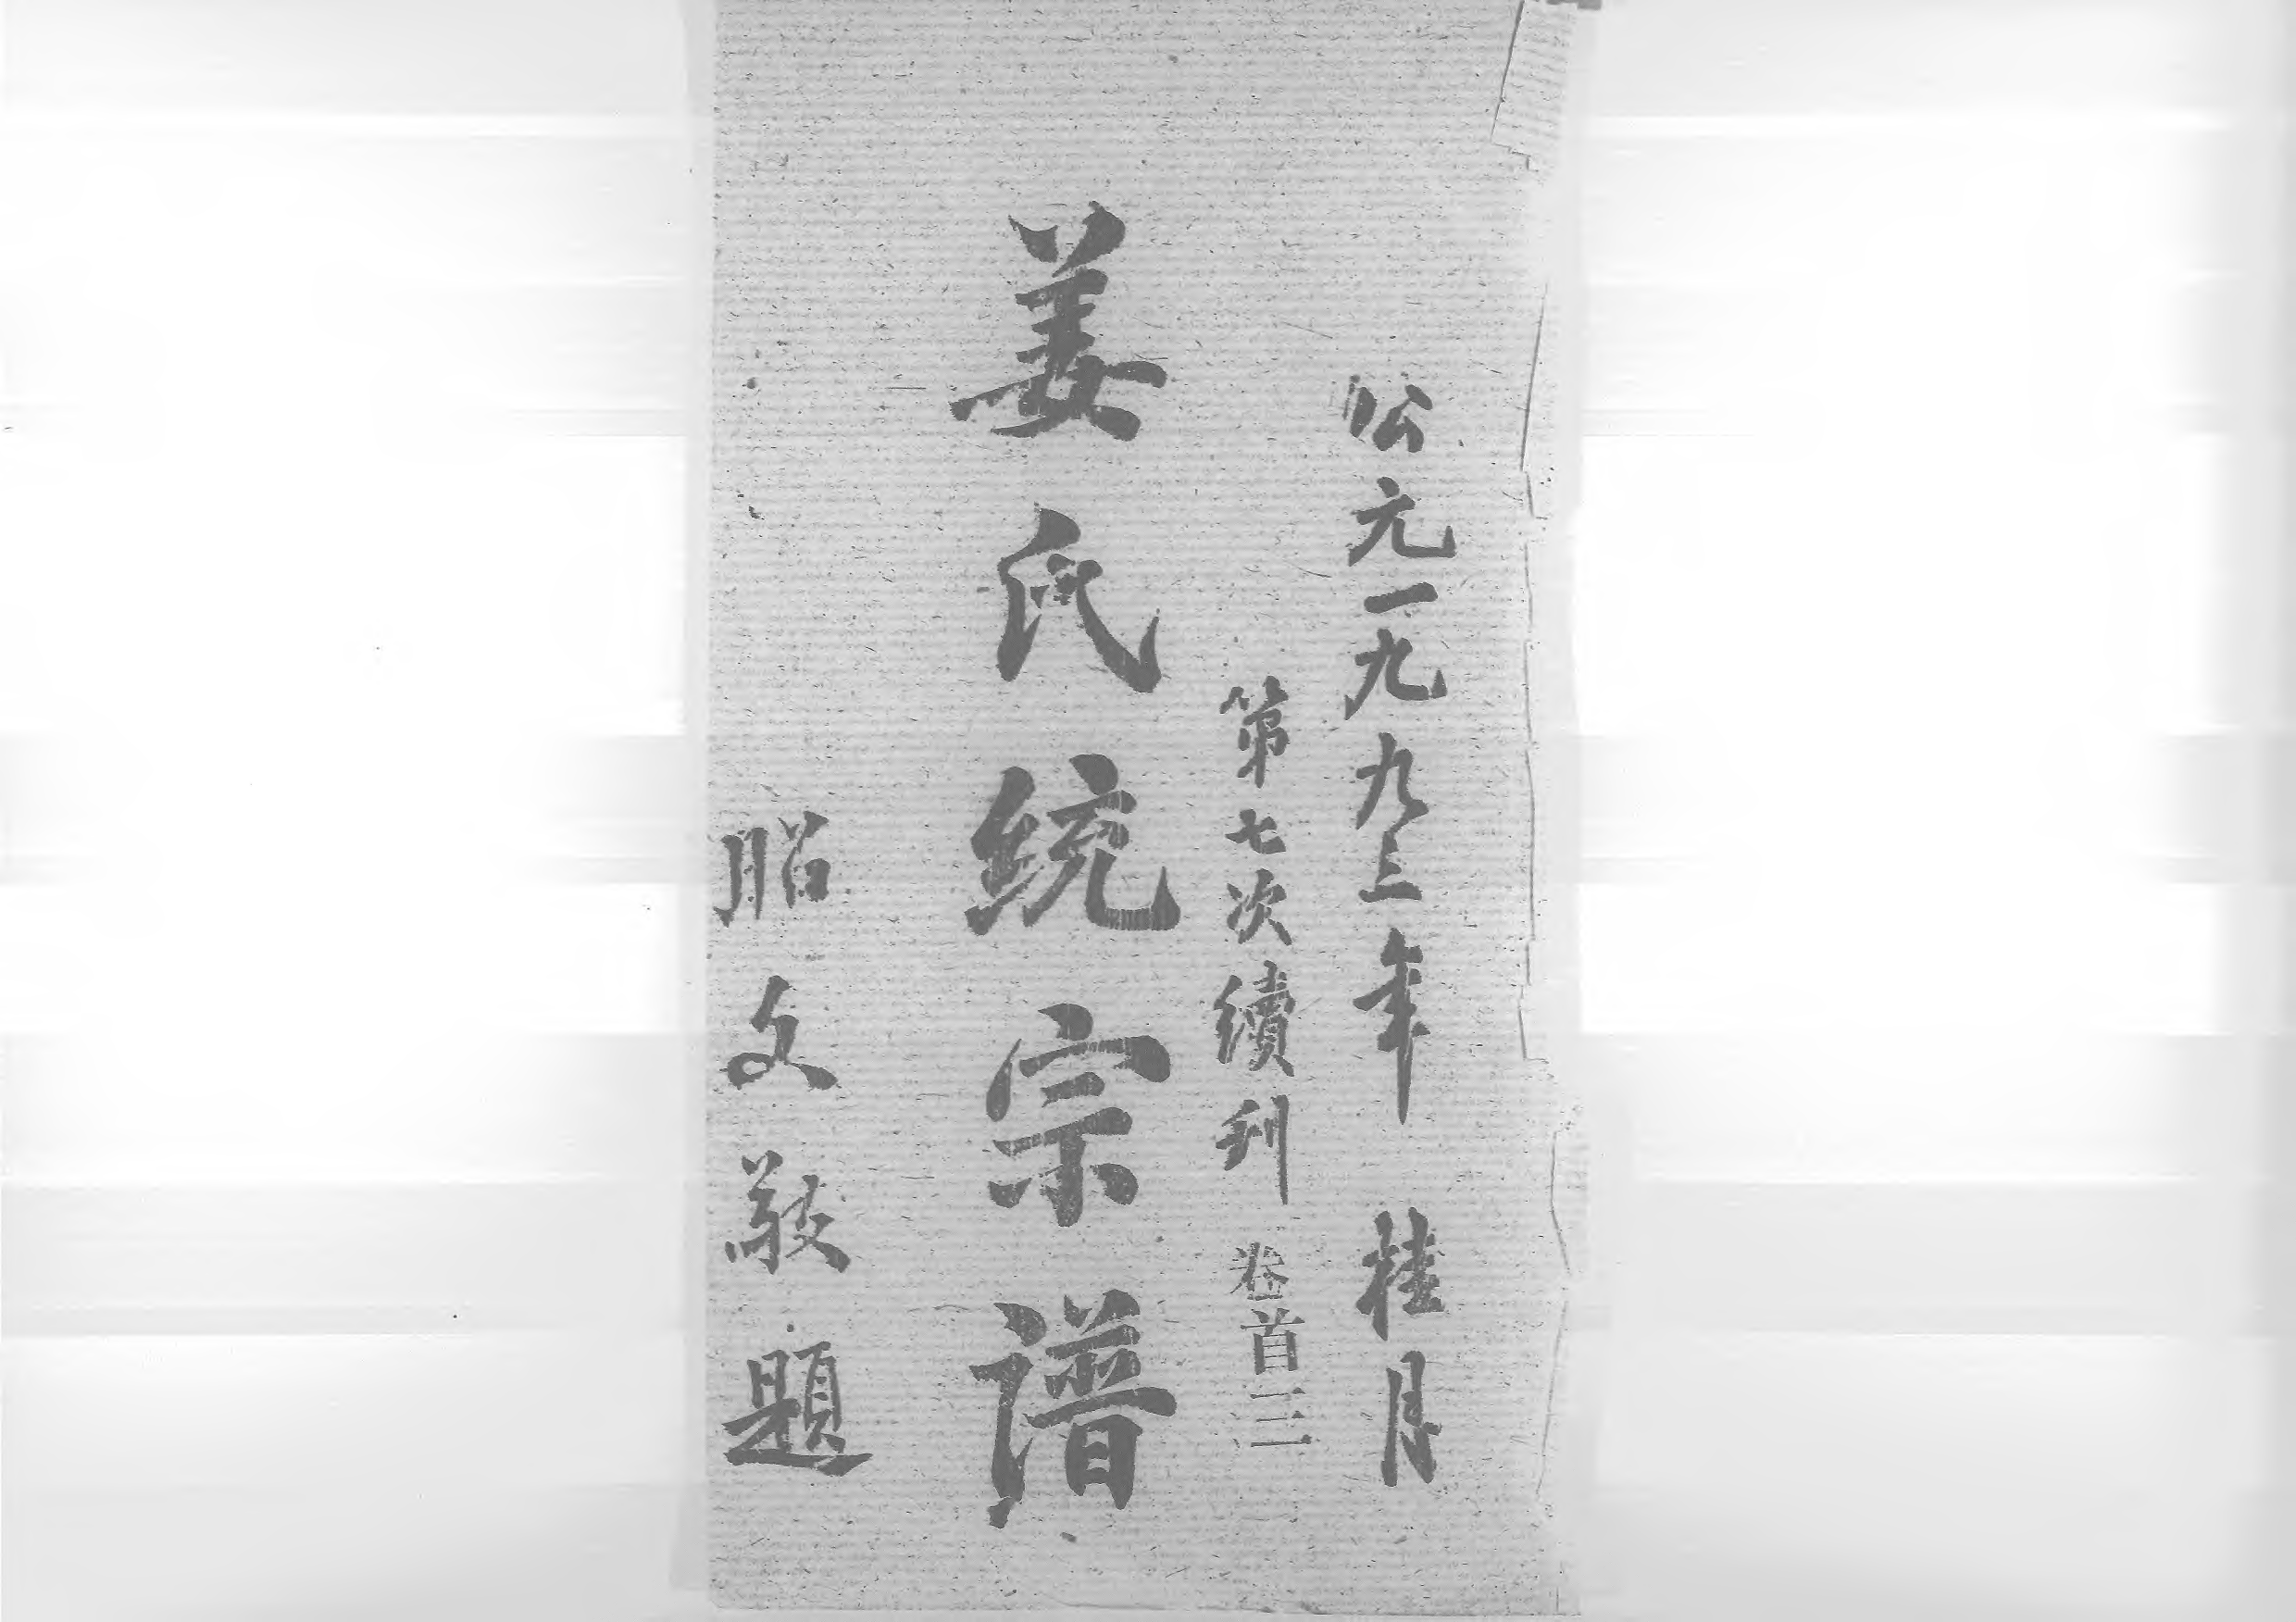 公元一九九三年 桂月
第七次續刊 卷首三
姜氏統宗譜
昭文敬題